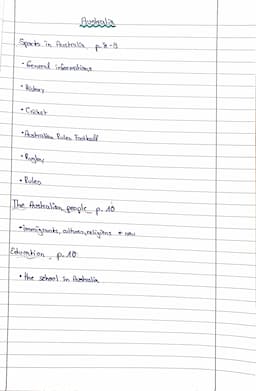 Australia
Sports in Australia p.8-9
• General informations
• History
• Cricket
• Australian Rules Football
• Rugby
• Rules
The Australian people p. 10
• immigrants, cultures, religions
Education p. 10
• the school in Australia